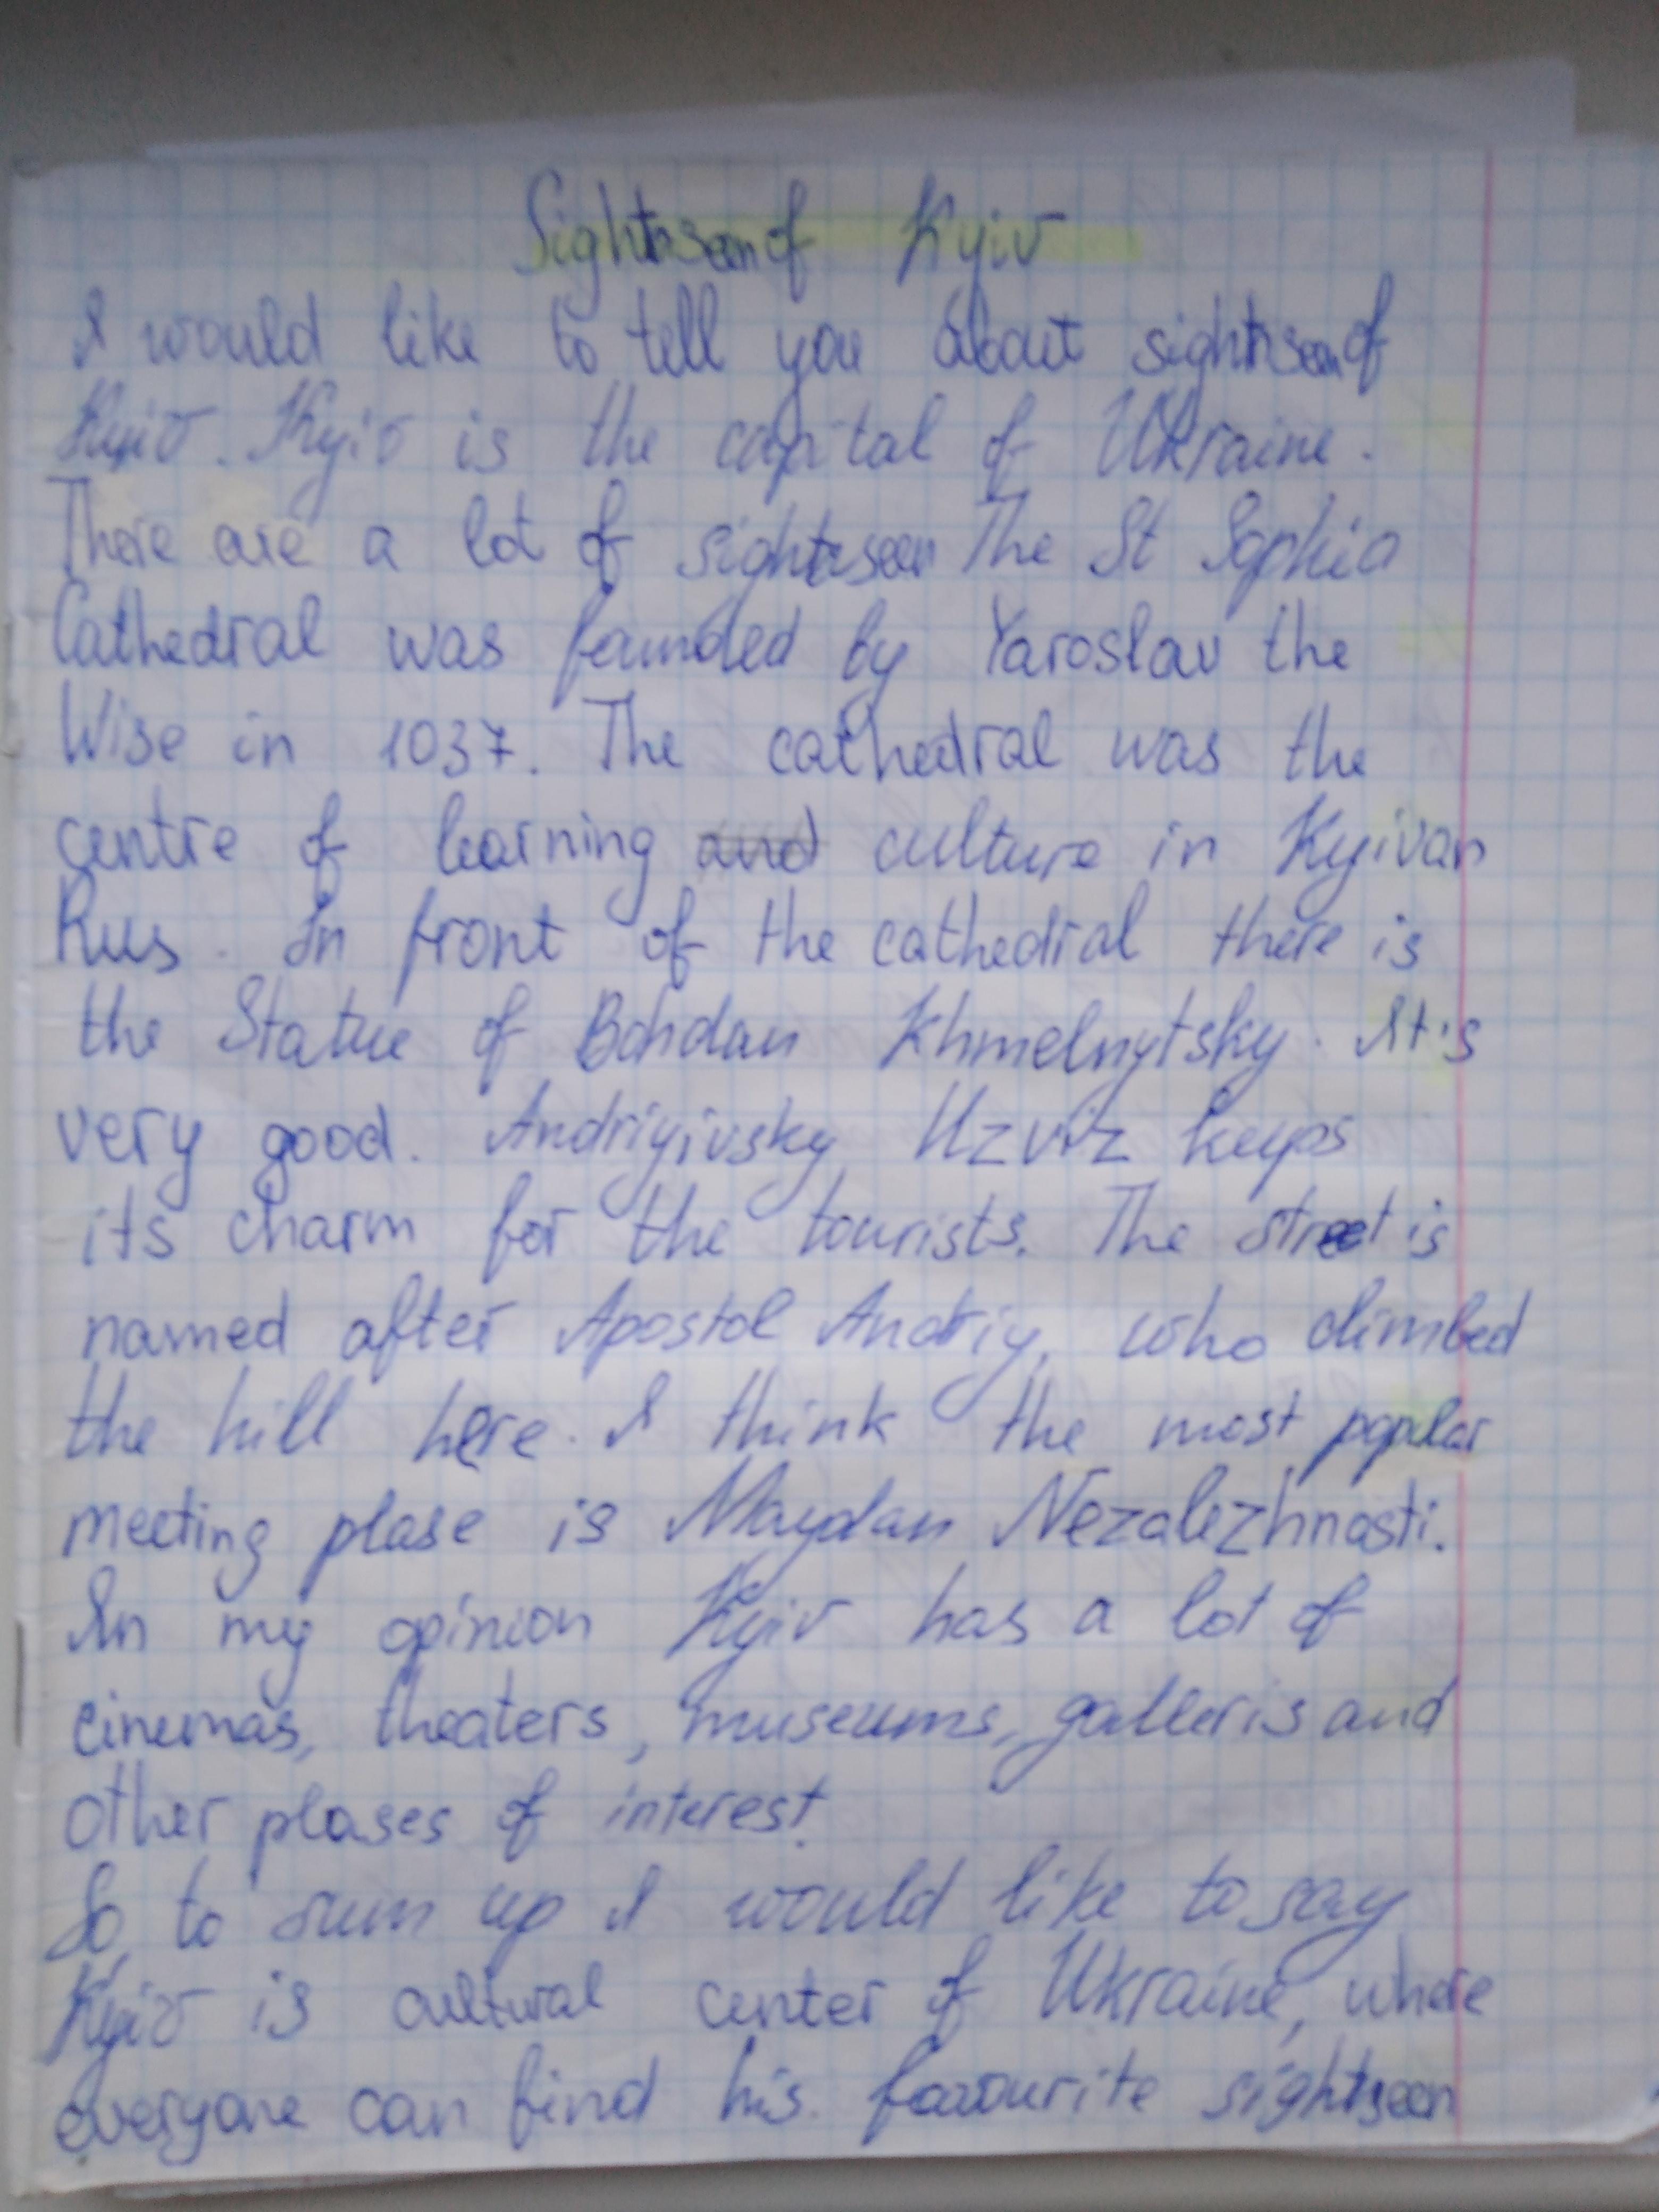 Sightseen of Kyiv
I would like to tell you about sightseen of
Kyiv. Kyiv is the capital of Ukraine.
There are a lot of sightseen The St Sophia
Cathedral was founded by Yaroslav the
Wise in 1037. The cathedral was the
centre of learning and culture in Kyivan
Rus. In front of the cathedral there is
the Statue of Bohdan Khmelnytsky. It's
very good. Andriyivsky Uzviz keeps
its charm for the tourists. The street is
named after Apostol Andriy, who climbed
the hill here. I think the most popular
meeting plase is Maydan Nezalezhnosti.
In my opinion Kyiv has a lot of
cinemas, theaters, museums, galleris and
other plases of interest.
So, to sum up I would like to say
Kyiv is cultural center of Ukraine, where
everyone can find his favourite sightseen